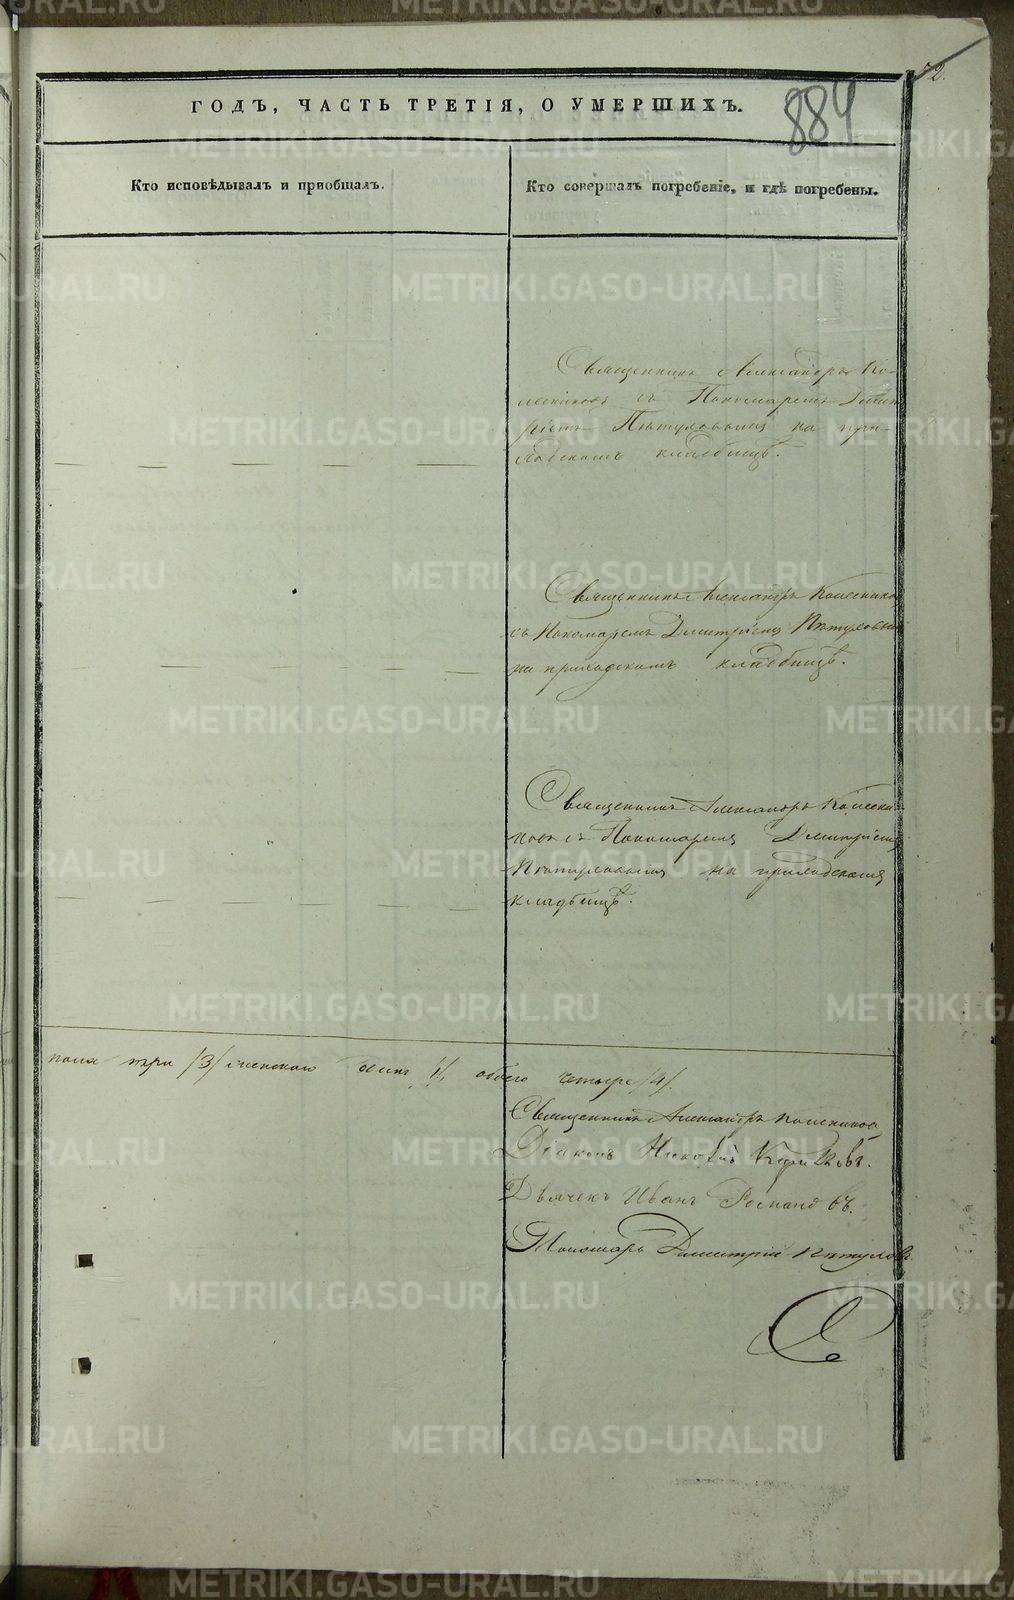 52.
ГОДЪ, ЧАСТЬ ТРЕТІЯ, О УМЕРШИХЪ.
884
Кто исповѣдывалъ и приобщалъ.
Кто совершалъ погребеніе, и гдѣ погребены.
Священникъ Александръ Ко-
лесниковъ съ Пономаремъ Димит
ріемъ Пѣтуховымъ на при-
ходскомъ кладбищѣ.
Священникъ Александръ Колесников
съ Пономаремъ Димитріемъ Пѣтуховым
на приходскомъ кладбищѣ.
Священникъ Александръ Колесни-
ковъ съ Пономаремъ Димитріемъ
Пѣтуховымъ на приходскомъ
кладбищѣ.
пола три /3/ женскаго одинъ /1/ обоего четыре /4/.
Священникъ Александръ Колесниковъ
Діаконъ Николай
Дьячекъ Иванъ
Пономарь Димитрій Пѣтуховъ.
METRIKI.GASO-URAL.RU